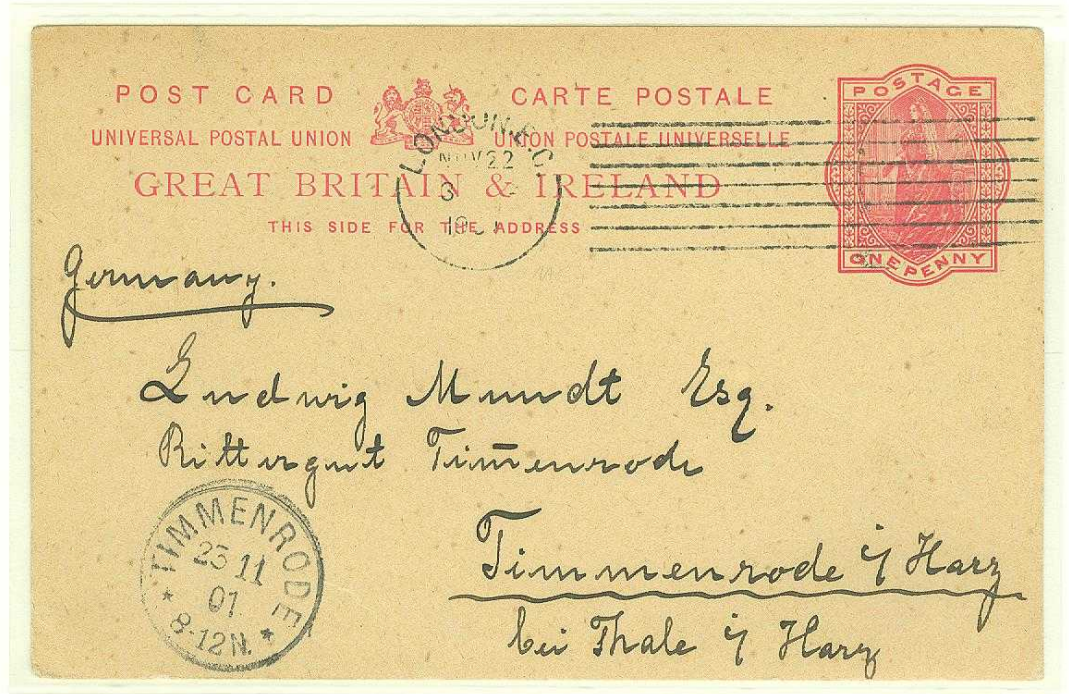 POST CARD CARTE POSTALE
UNIVERSAL POSTAL UNION UNION POSTALE UNIVERSELLE
GREAT BRITAIN & IRELAND
THIS SIDE FOR THE ADDRESS
POSTAGE
ONE PENNY
LONDON. E.C.
NOV 22
Germany.
Ludwig Mundt Esq.
Rittergut Tim̅enrode
Timmenrode i/ Harz
bei Thale i/ Harz
TIMMENRODE
23 11
01.
* 8-12 N. *